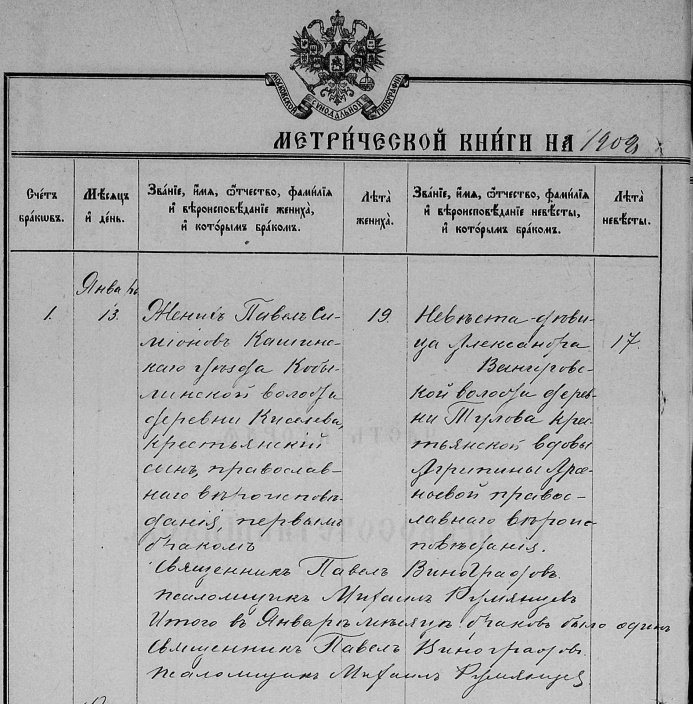 МОСКОВСКОЙ СѴНОДАЛЬНОЙ ТИПОГРАФІИ
МЕТРИ́ЧЕСКОЙ КНИ́ГИ НА 1908
Счетъ бракѡвъ.
Мѣсяцъ и день.
Званіе, имя, ѻтчество, фамилія и вѣроисповѣданіе жениха, и которымъ бракомъ.
Лѣта жениха.
Званіе, имя, ѻтчество, фамилія и вѣроисповѣданіе невѣсты, и которымъ бракомъ.
Лѣта невѣсты.
1.
13.
Женихъ Павелъ Си-
міоновъ Кашинс-
каго уѣзда Кобы-
линской волости
деревни Киселева,
крестьянскій
сынъ, православ-
наго вѣроисповѣ-
данія, первымъ
бракомъ
19.
Невѣста-дѣви-
ца Александра
кой волости дерев-
ни Тулова крес-
тьянской вдовы
Агрипины
православ-
славнаго вѣроис-
повѣданія.
17.
Священникъ Павелъ Виноградовъ.
Псаломщикъ Михаилъ Румянцевъ
Итого въ Январѣ мѣсяцѣ браковъ было одинъ
Священникъ Павелъ Виноградовъ.
Псаломщикъ Михаилъ Румянцевъ